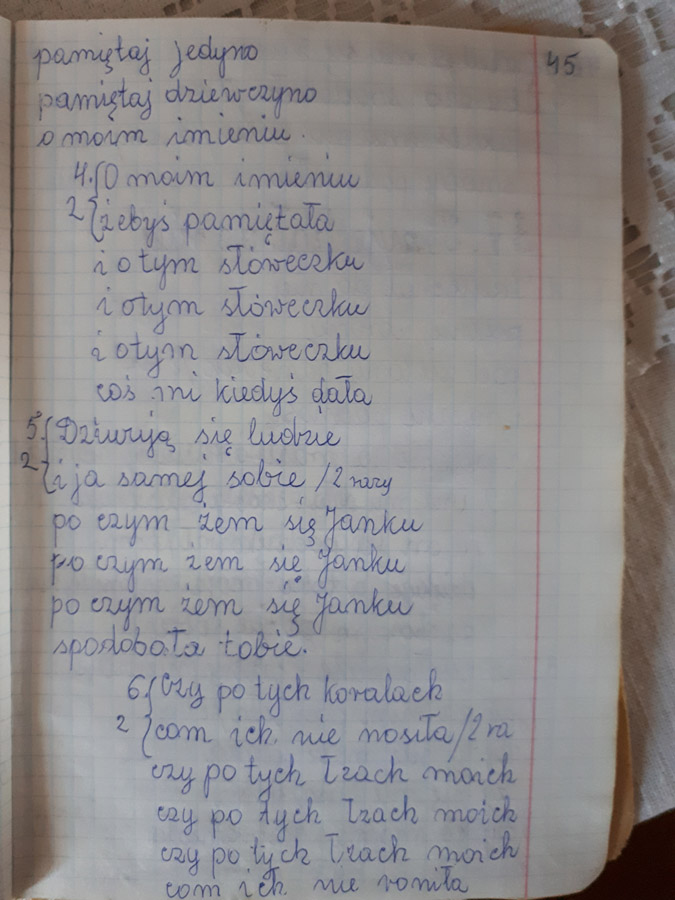 45
pamiętaj jedyno
pamiętaj dziewczyno
o moim imieniu.
4. { O moim imieniu
2 { żebyś pamiętała
i o tym słóweczku
i otym słóweczku
i otym słóweczku
coś mi kiedyś dała
5. { Dziwują się ludzie
2 { i ja samej sobie /2 razy
po czym żem się Janku
po czym żem się Janku
po czym żem się Janku
spodobała tobie.
6. { Czy po tych koralach
2 { com ich nie nosiła /2 ra
czy po tych łzach moich
czy po tych łzach moich
czy po tych łzach moich
com ich nie roniła